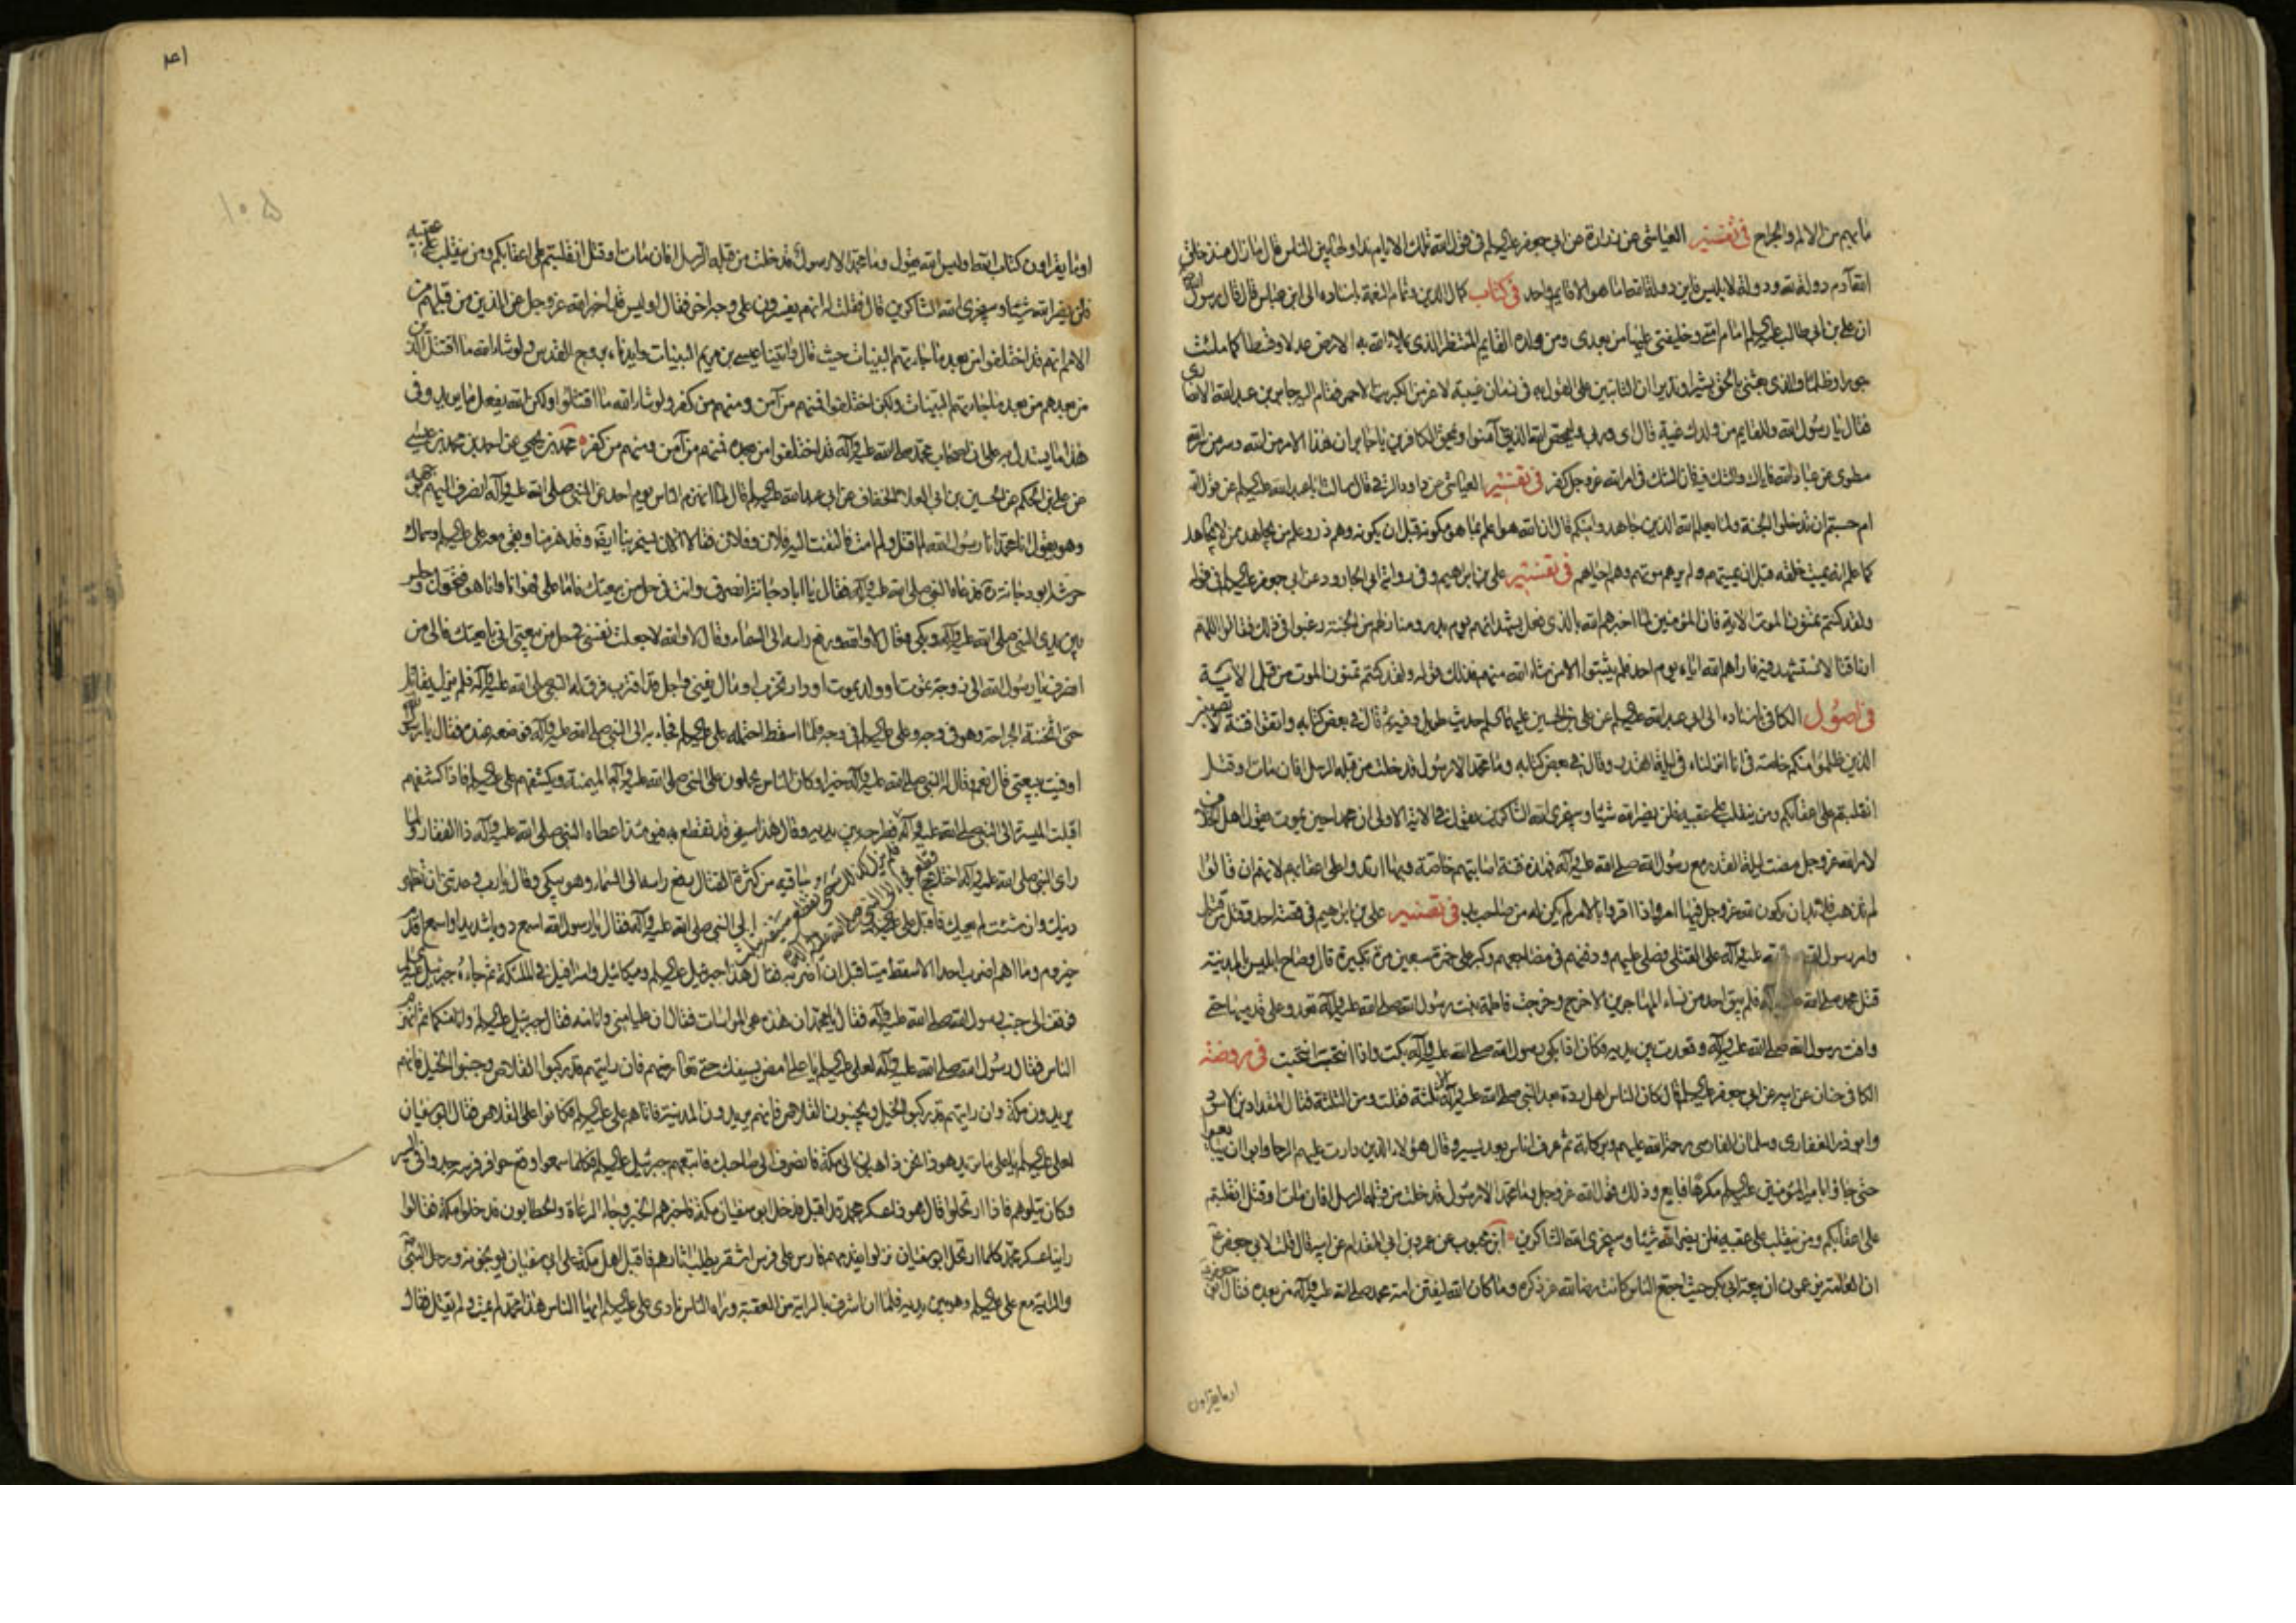 ما بهم من الالم والجراح في تفسير العياشي عن زرارة عن ابي جعفر عليه السلام في قول الله تلك الايام نداولها بين الناس قال ما زال منذ خلق
الله آدم دولة لله ودولة لابليس فاين دولة الله اما هو الا قايم واحد في كتاب كمال الدين وتمام النعمة باسناده الى ابن عباس قال قال رسول الله
ان علي بن ابي طالب عليه السلام امام امتي وخليفتي عليها من بعدي ومن ولده القايم المنتظر الذي يملاء الله به الارض عدلا وقسطا كما ملئت
جورا وظلما والذي بعثني بالحق بشيرا ونذيرا ان الثابتين على القول به في زمان غيبة لاعز من الكبريت الاحمر فقام اليه جابر بن عبد الله الانصاري
فقال يا رسول الله وللقايم من ولدك غيبة قال اي وربي وليمحص الله الذين آمنوا ويمحق الكافرين يا جابر ان هذا الامر من الله وسر من سر الله
مطوي عن عباد الله فاياك والشك فيه فان الشك في امر الله عز وجل كفر في تفسير العياشي عن داود الرقي قال سالت ابا عبد الله عليه السلام عن قول الله
ام حسبتم ان تدخلوا الجنة ولما يعلم الله الذين جاهدوا منكم قال ان الله هو اعلم بما هو مكونه قبل ان يكونه وهم ذر وعلم من يجاهد ممن لا يجاهد
كما علم انه يميت خلقه قبل ان يميتهم ولم يرهم موتهم وهم احياهم في تفسير علي بن ابراهيم وفي رواية ابي الجارود عن ابي جعفر عليه السلام في قوله
ولقد كنتم تمنون الموت الاية فان المؤمنين لما اخبرهم الله بالذي فعل بشهدائهم يوم بدر ومنازلهم من الجنة رغبوا في ذلك فقالوا اللهم
ارنا قتالا نستشهد فيه فاراهم الله اياه يوم احد فلم يثبتوا الا من شاء الله منهم فذلك قوله ولقد كنتم تمنون الموت من قبل الاية
في اصول الكافي باسناده الى ابي عبد الله عليه السلام عن علي بن الحسين عليهما السلام حديث طويل وفيه ثم قال في بعض كتابه واتقوا فتنة لا تصيبن
الذين ظلموا منكم خاصة في انا انزلناه في ليلة القدر وقال في بعض كتابه وما محمد الا رسول قد خلت من قبله الرسل افان مات او قتل
انقلبتم على اعقابكم ومن ينقلب على عقبيه فلن يضر الله شيئا وسيجزي الله الشاكرين يقول في الاية الاولى ان محمدا حين يموت يقول اهل الخلاف
لامر الله عز وجل مضت ليلة القدر مع رسول الله صلى الله عليه وآله فهذه فتنة اصابتهم خاصة وبها ارتدوا على اعقابهم لانهم ان قالوا
لم تذهب فلا بد ان يكون لله عز وجل فيها امر واذا اقروا بالامر لم يكن له من صاحب بد في تفسير علي بن ابراهيم في قصة احد
وامر رسول الله صلى الله عليه وآله على القتلى فصلى عليهم ودفنهم في مضاجعهم وكبر على حمزة سبعين تكبيرة قال وصاح ابليس بالمدينة
قتل محمد صلى الله عليه وآله فلم يبق احد من نساء المهاجرين الا خرج وخرجت فاطمة بنت رسول الله صلى الله عليه وآله تعدو على قدميها حتى
وافت رسول الله صلى الله عليه وآله وقعدت بين يديه وكان اذا بكى رسول الله صلى الله عليه وآله بكت واذا انتحب انتحبت في روضة
الكافي حنان عن ابيه عن ابي جعفر عليه السلام قال كان الناس اهل ردة بعد النبي صلى الله عليه وآله الا ثلثة فقلت ومن الثلثة فقال المقداد بن الاسود
وابو ذر الغفاري وسلمان الفارسي رحمة الله عليهم وبركاته ثم عرف اناس بعد يسير وقال هؤلاء الذين دارت عليهم الرحا وابوا ان يبايعوا
حتى جاؤا بامير المؤمنين عليه السلام مكرها فبايع وذلك قول الله عز وجل وما محمد الا رسول قد خلت من قبله الرسل افان مات او قتل انقلبتم
على اعقابكم ومن ينقلب على عقبيه فلن يضر الله شيئا وسيجزي الله الشاكرين ابن محبوب عن عمرو بن ابي المقدام عن ابيه قال قلت لابي جعفر ع
ان العامة يزعمون ان بيعة ابي بكر حيث اجتمع الناس كانت رضا لله عز ذكره وما كان الله ليفتن امة محمد صلى الله عليه وآله من بعده فقال ابو جعفر
اوما يقراون
١٠٥
اوما يقراون كتاب الله اوليس الله يقول وما محمد الا رسول قد خلت من قبله الرسل افان مات او قتل انقلبتم على اعقابكم ومن ينقلب على عقبيه
فلن يضر الله شيئا وسيجزي الله الشاكرين قال فقلت له انهم يفسرون على وجه اخر فقال اوليس قد اخبر الله عز وجل عن الذين من قبلهم من
الامم انهم قد اختلفوا من بعد ما جاءتهم البينات حيث قال وآتينا عيسى بن مريم البينات وايدناه بروح القدس ولو شاء الله ما اقتتل الذين
من بعدهم من بعد ما جاءتهم البينات ولكن اختلفوا فمنهم من آمن ومنهم من كفر ولو شاء الله ما اقتتلوا ولكن الله يفعل ما يريد وفي
هذا ما يستدل به على ان اصحاب محمد صلى الله عليه وآله قد اختلفوا من بعده فمنهم من آمن ومنهم من كفر محمد بن يحيى عن احمد بن محمد بن عيسى
عن علي بن الحكم عن الحسين بن ابي العلاء الخفاف عن ابي عبد الله عليه السلام قال لما انهزم الناس يوم احد عن النبي صلى الله عليه وآله انصرف اليهم بوجهه
وهو يقول انا محمد انا رسول الله لم اقتل ولم امت فالتفت اليه فلان وفلان فقالا الان يسخر بنا ايضا وقد هزمنا وبقي معه علي عليه السلام وسماك
بن خرشه ابو دجانة ره فدعاه النبي صلى الله عليه وآله فقال يا ابا دجانة انصرف وانت في حل من بيعتك فاما علي فهو انا وانا هو فتحول وجلس
بين يدي النبي صلى الله عليه وآله وبكى وقال لا والله ورفع راسه الى السماء وقال لا والله لا جعلت نفسي في حل من بيعتي اني بايعتك فالى من
انصرف يا رسول الله الى زوجة تموت او ولد يموت او دار تخرب او مال يفنى واجل قد اقترب فرق له النبي صلى الله عليه وآله فلم يزل يقاتل
حتى اثخنته الجراحة وهو في وجه وعلي عليه السلام في وجه فلما اسقط احتمله علي عليه السلام فجاء به الى النبي صلى الله عليه وآله فوضعه عنده فقال يا رسول الله
اوفيت ببيعتي قال نعم وقال له النبي صلى الله عليه وآله خيرا وكان الناس يحملون على النبي صلى الله عليه وآله الميمنة ويكشفهم علي عليه السلام فاذا كشفهم
اقبلت الميسرة الى النبي صلى الله عليه وآله فلم يزل كذلك حتى تقطع سيفه بثلث قطع فجاء الى النبي فطرحه بين يديه وقال هذا سيفي قد تقطع فيومئذ اعطاه النبي صلى الله عليه وآله ذا الفقار ولما
راى النبي صلى الله عليه وآله اختلاج ساقيه من كثرة القتال رفع راسه الى السماء وهو يبكي وقال يا رب وعدتني ان تظهر
دينك وان شئت لم يعيك فاقبل علي عليه السلام الى النبي صلى الله عليه وآله فقال يا رسول الله اسمع دويا شديدا واسمع اقدم
حيزوم وما اهم اضرب احدا الا سقط ميتا قبل ان اضربه فقال هذا جبرئيل عليه السلام وميكائيل واسرافيل في الملئكة ثم جاءه جبرئيل عليه السلام
فوقف الى جنب رسول الله صلى الله عليه وآله فقال يا محمد ان هذه هي المواسات فقال ان عليا مني وانا منه فقال جبرئيل عليه السلام وانا منكما ثم انهزم
الناس فقال رسول الله صلى الله عليه وآله لعلي عليه السلام يا علي امض بسيفك حتى تعارضهم فان رايتهم قد ركبوا القلاص وجنبوا الخيل فانهم
يريدون مكة وان رايتهم قد ركبوا الخيل ويجنبون القلاص فانهم يريدون المدينة فاتاهم علي عليه السلام فكانوا على القلاص فقال ابو سفيان
لعلي عليه السلام يا علي ما تريد هو ذا نحن ذاهبون الى مكة فانصرف الى صاحبك فاتبعهم جبرئيل عليه السلام فكلما سمعوا وقع حوافر فرسه جدوا في السير
وكان يتلوهم فاذا ارتحلوا قال هو ذا عسكر محمد قد اقبل فدخل ابو سفيان مكة فاخبرهم الخبر وجاء الرعاة والحطابون فدخلوا مكة فقالوا
راينا عسكر محمد كلما ارتحل ابو سفيان نزلوا يقدمهم فارس على فرس اشقر يطلب اثارهم فاقبل اهل مكة على ابي سفيان يوبخونه ورحل النبي ص
والراية مع علي عليه السلام وهو بين يديه فلما ان اشرف بالراية من العقبة وراه الناس نادى علي عليه السلام ايها الناس هذا محمد لم يمت ولم يقتل فقال